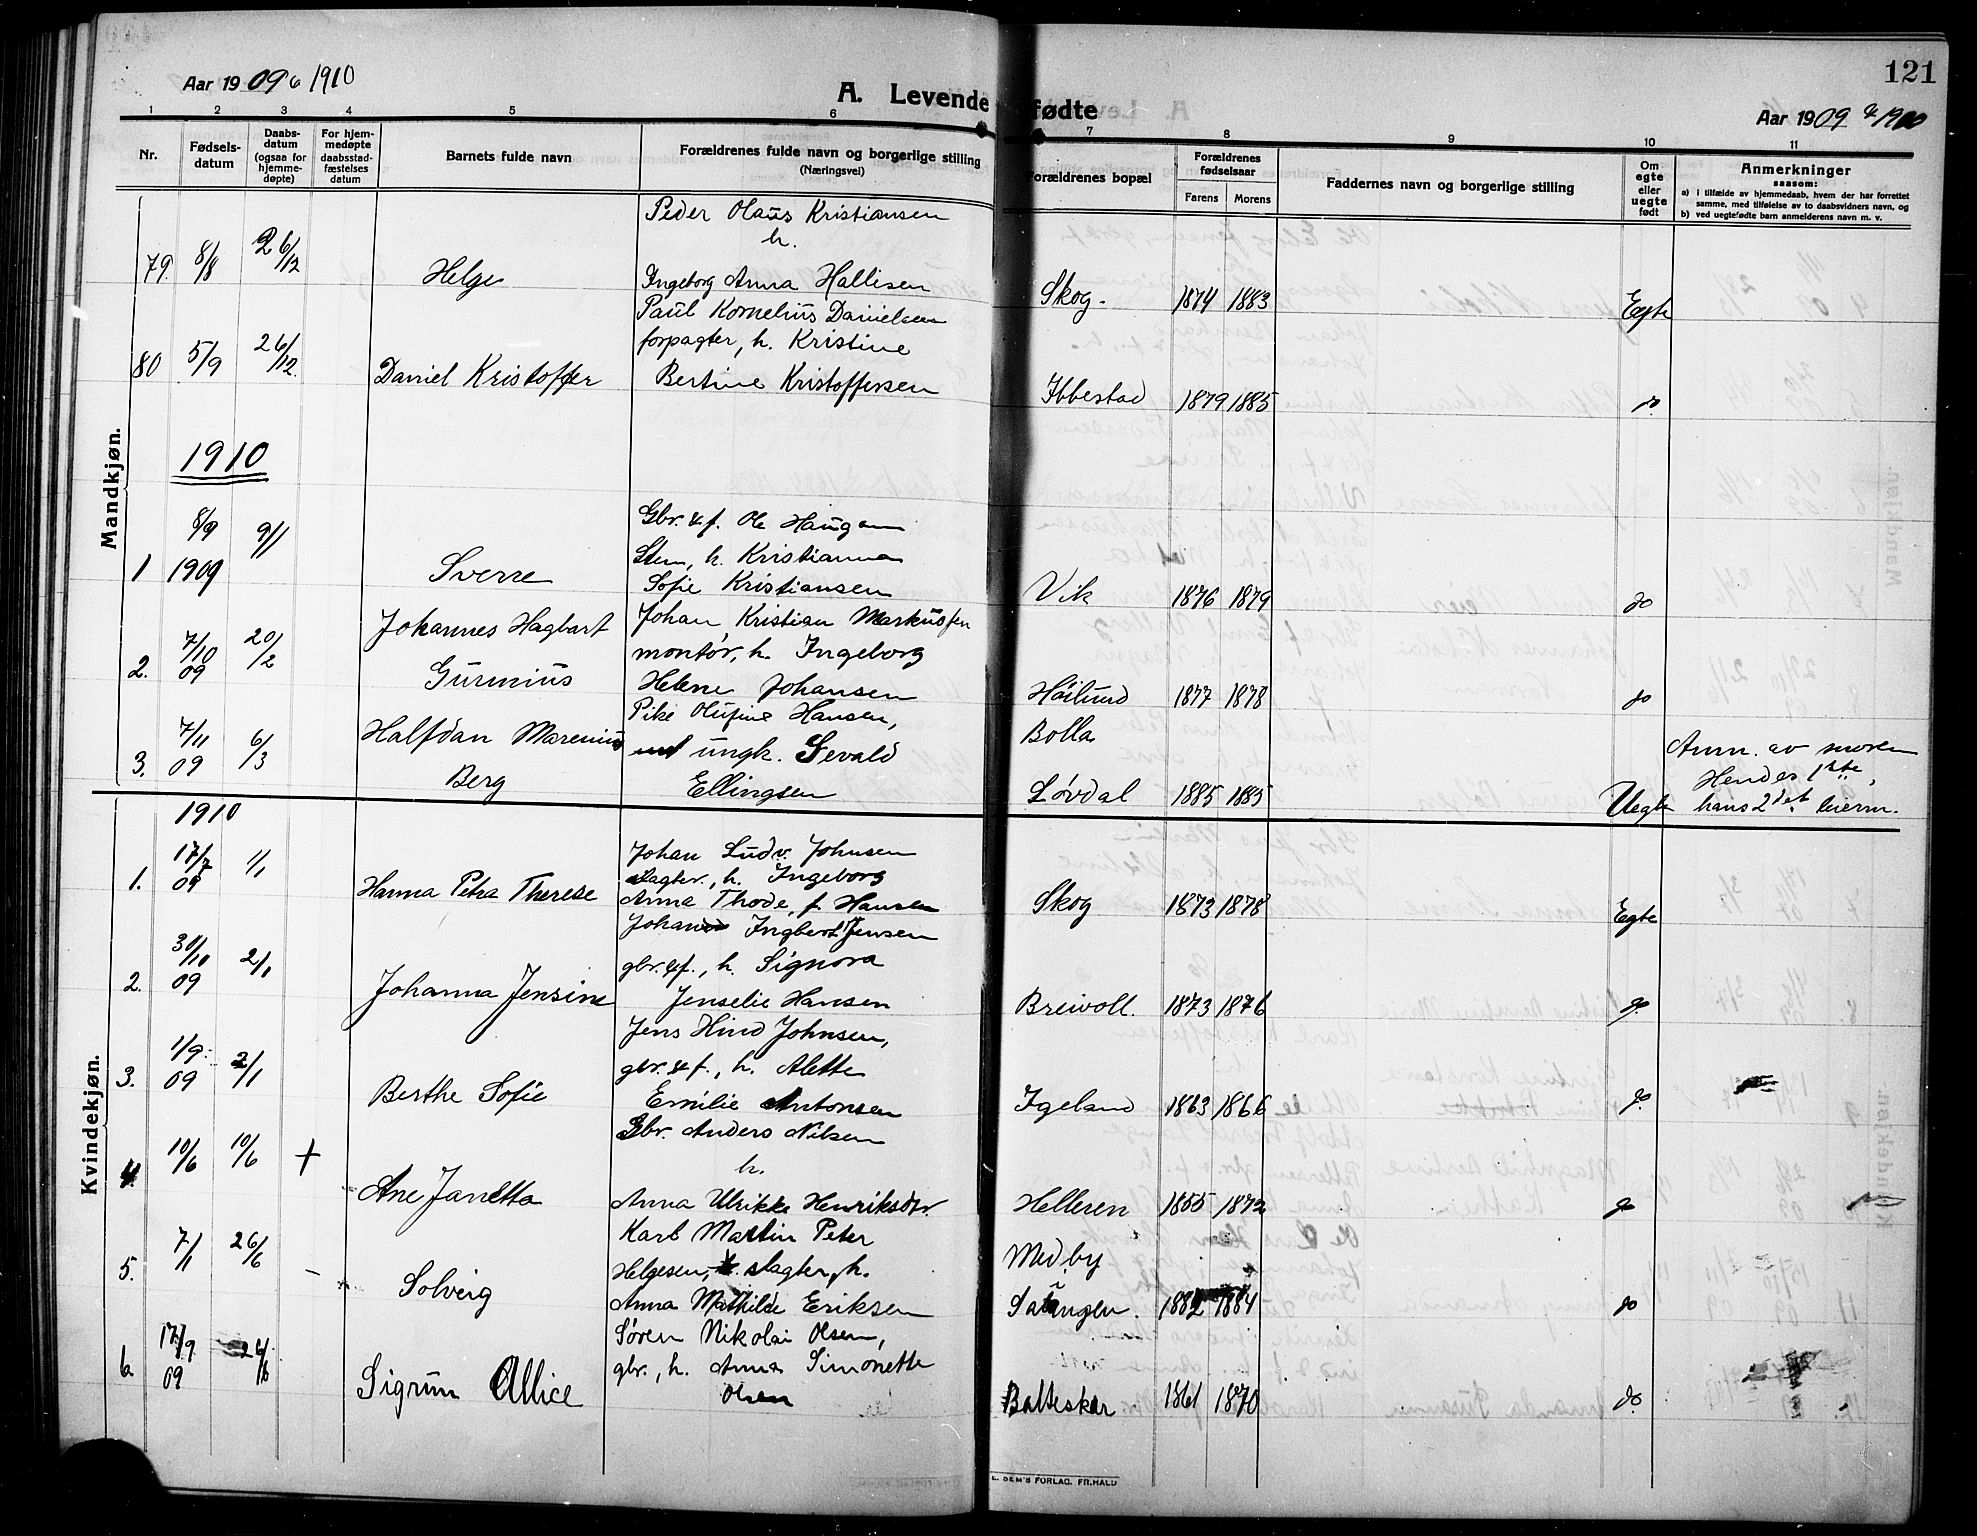 Aar 1909 & 1910
A. Levende fødte
Aar 1909 & 1910
121
1 2 3 4 5 6 7 8 9 10 11
Nr.
Fødsels-
datum
Daabs-
datum
(ogsaa for
hjemme-
døpte)
For hjem-
medøpte
daabsstad-
fæstelses
datum
Barnets fulde navn
Forældrenes fulde navn og borgerlige stilling
(Næringsvei)
Forældrenes bopæl
Forældrenes
fødselsaar
Farens Morens
Faddernes navn og borgerlige stilling
Om
egte
eller
uegte
født
Anmerkninger
saasom:
a) i tilfælde av hjemmedaab, hvem der har forrettet
samme, med tilføielse av to daabsvidners navn, og
b) ved uegtefødte barn anmelderens navn m. v.
Mandkjøn.
Peder Olaus Kristiansen
h.
79. 8/8 26/12 Helge Ingeborg Anna Hallisen Skog. 1874 1883 Egte
Paul Kornelius Danielsen
forpagter, h. Kristine
80 5/9 26/12 Daniel Kristoffer Bertine Kristoffersen Ibbestad 1879 1885 do
1910
8/9 9/1 Gbr. & f. Ole Haugan
1 1909 Sverre Sten, h. Kristianna
Sofie Kristiansen Vik 1876 1879 do
Johannes Hagbart Johan Kristian Markussen
2. 7/10 09 20/2 Gunnius montør, h. Ingeborg
Helene Johansen Høilund 1877 1878 do
Halfdan Marenius Pike Olufine Hansen, Bolla
3. 7/11 09 6/3 Berg ungk. Sevald
Ellingsen Løvdal 1885 1885 Uegte
Anm. av moren
Hendes 1ste,
hans 2det leierm.
Kvindekjøn.
1910
1. 17/7 09 1/1 Hanna Petra Therese Johan Ludv. Johnsen
slagter, h. Ingeborg
Anna Thode, f. Hansen Skog 1873 1878 Egte
2. 30/10 09 2/1 Johanna Jensine Johan Ingbert Jensen
gbr. & f., h. Signora
Jenselie Hansen Breivoll. 1873 1876 do
3. 1/9 09 2/1 Berthe Sofie Jens Hind Johnsen,
gbr. & f., h. Alette
Emilie Antonsen Igeland 1863 1866 do
4. 10/6 10/6 + Ane Janetta Gbr. Anders Nilsen
h.
Anna Ulrikke Henriksdtr. Helleren 1855 1872 do
5. 7/1 26/6 – Solveig Karl Martin Peter
Helgesen, slagter, h.
Anna Mathilde Eriksen Medby
Salangen. 1882 1884 do
6. 17/9 09 26/6 Sigrun Allice Søren Nikolai Olsen,
gbr., h. Anna Simonette
Olsen Balteskar 1861 1870 do.
SEM'S FORLAG. FR.HALD